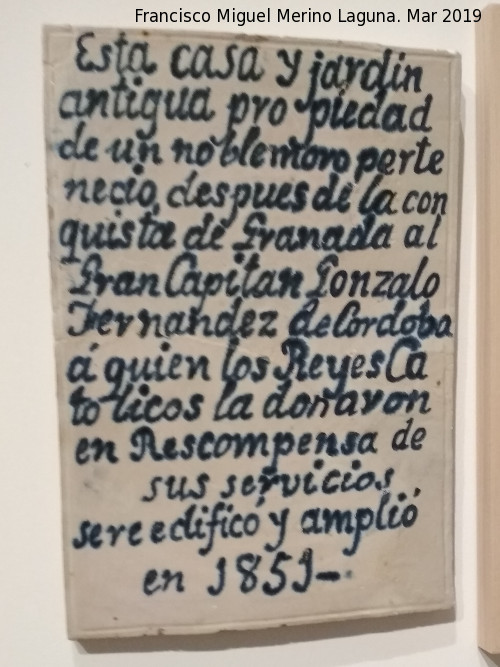 Francisco Miguel Merino Laguna. Mar 2019
Esta casa y jardin
antigua pro piedad
de un no blemoro perte
necio, despues de la con
quista de Granada al
Gran Capitan Gonzalo
Fernandez de Cordoba
á quien los Reyes Ca
to licos la donaron
en Rescompensa de
sus servicios
se reedificó y amplió
en 1851-